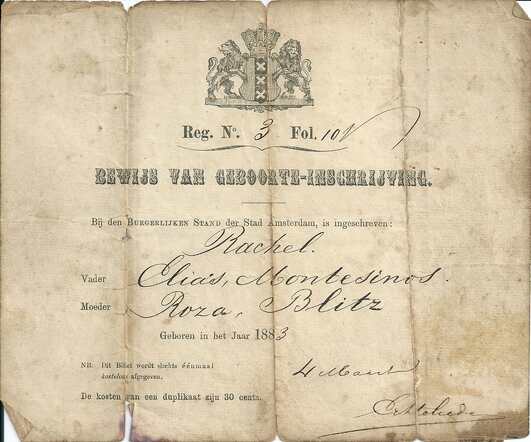 Reg. No. 3 Fol. 10
BEWIJS VAN GEBOORTE-INSCHRIJVING.
Bij den BURGERLIJKEN STAND der Stad Amsterdam, is ingeschreven:
Rachel.
Vader Elias, Montesinos.
Moeder Roza, Blitz
Geboren in het Jaar 1883
NB. Dit Billet wordt slechts éénmaal
kosteloos afgegeven.
4 Maart
De kosten van een duplikaat zijn 30 cents.